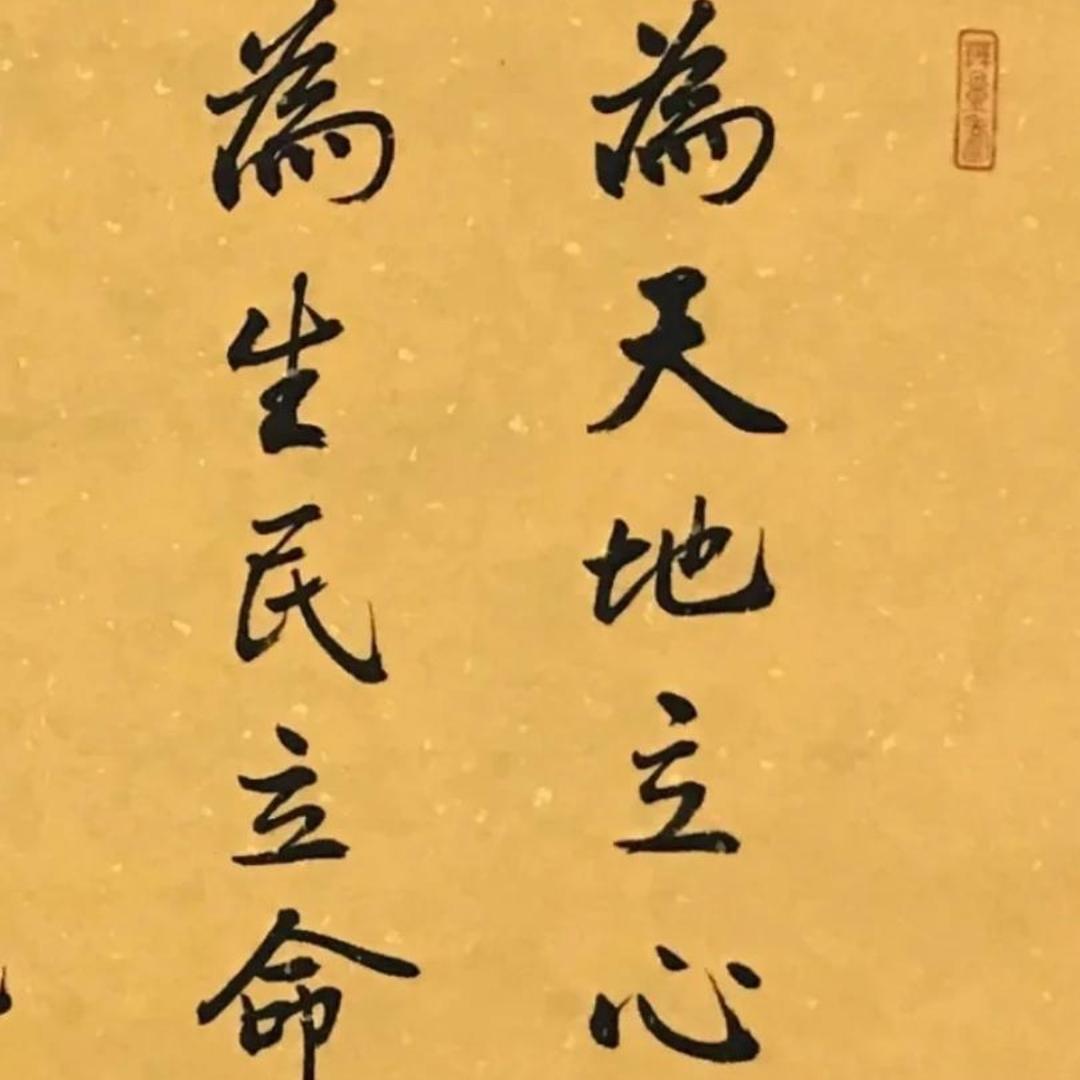 為天地立心
為生民立命